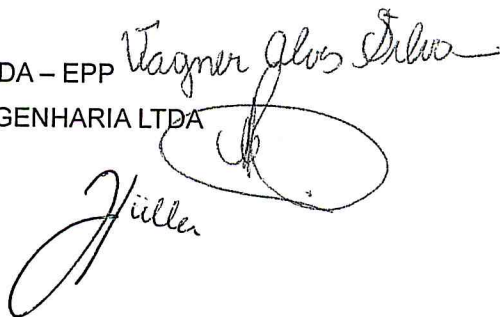 DA – EPP Vagner Alves Silva
GENHARIA LTDA
Hüller